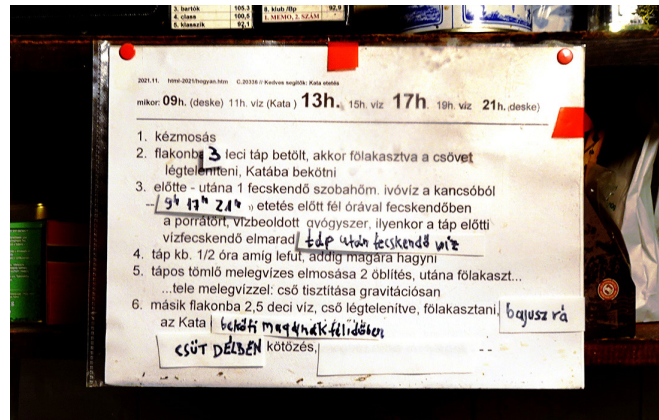 3. bartók 105,3
4. class 100,5
5. klasszik 92,1
8. klub /Bp 92,9
1. MEMO, 2. SZÁM
2021.11. html-2021/hogyan.htm C.20336 // Kedves segítők: Kata etetés
mikor: 09h. (deske) 11h. víz (Kata ) 13h. 15h. víz 17h. 19h. víz 21h. (deske)
1. kézmosás
2. flakonba 3 leci táp betölt, akkor fölakasztva a csövet
légteleníteni, Katába bekötni
3. előtte - utána 1 fecskendő szobahőm. ivóvíz a kancsóból
9h 17h 21h etetés előtt fél órával fecskendőben
a porrátört, vízbeoldott gyógyszer, ilyenkor a táp előtti
vízfecskendő elmarad táp után fecskendő víz
4. táp kb. 1/2 óra amíg lefut, addig magára hagyni
5. tápos tömlő melegvízes elmosása 2 öblítés, utána fölakaszt...
...tele melegvízzel: cső tisztítása gravitációsan
6. másik flakonba 2,5 deci víz, cső légtelenítve, fölakasztani, bajusz rá
az Kata beköti magának félidőben
CSÜT DÉLBEN kötözés,